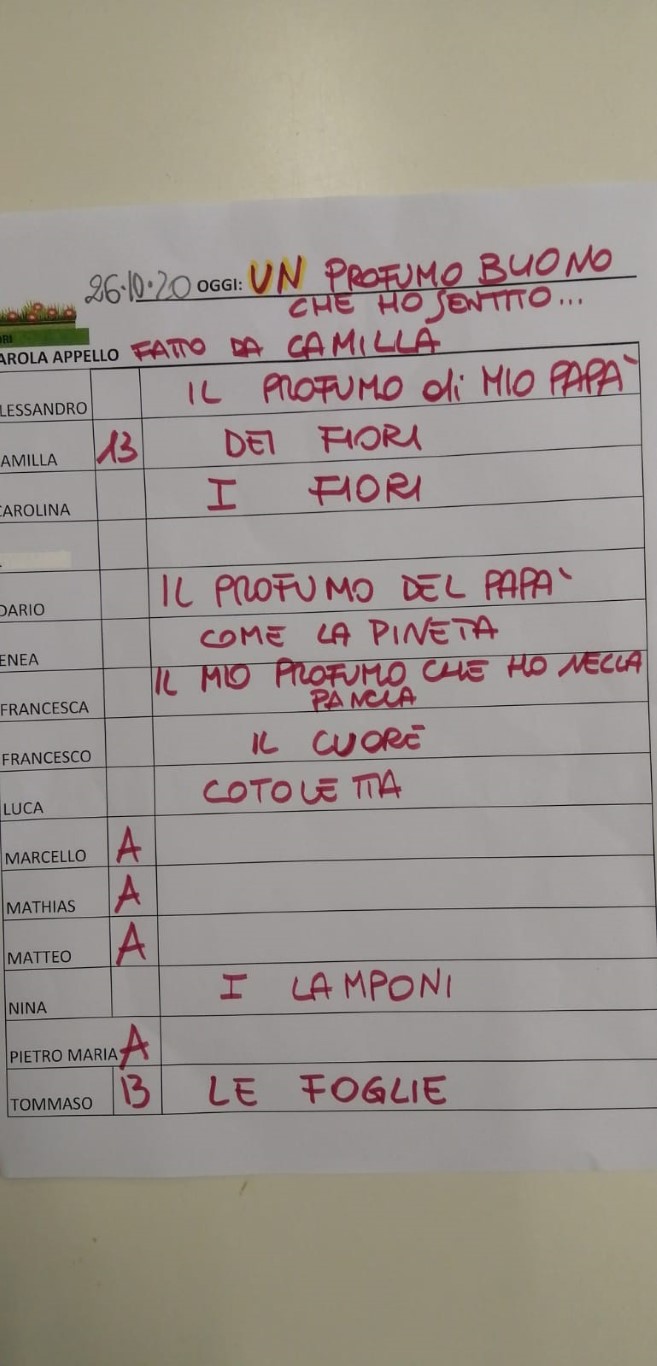 26.10.20 OGGI: UN PROFUMO BUONO
CHE HO SENTITO...
ORI
AROLA APPELLO FATTO DA CAMILLA
LESSANDRO IL PROFUMO di MIO PAPA'
AMILLA 13 DEI FIORI
CAROLINA I FIORI
DARIO IL PROFUMO DEL PAPA'
ENEA COME LA PINETA
FRANCESCA IL MIO PROFUMO CHE HO NELLA
PANCIA
FRANCESCO IL CUORE
LUCA COTOLETTA
MARCELLO A
MATHIAS A
MATTEO A
NINA I LAMPONI
PIETRO MARIA A
TOMMASO 13 LE FOGLIE